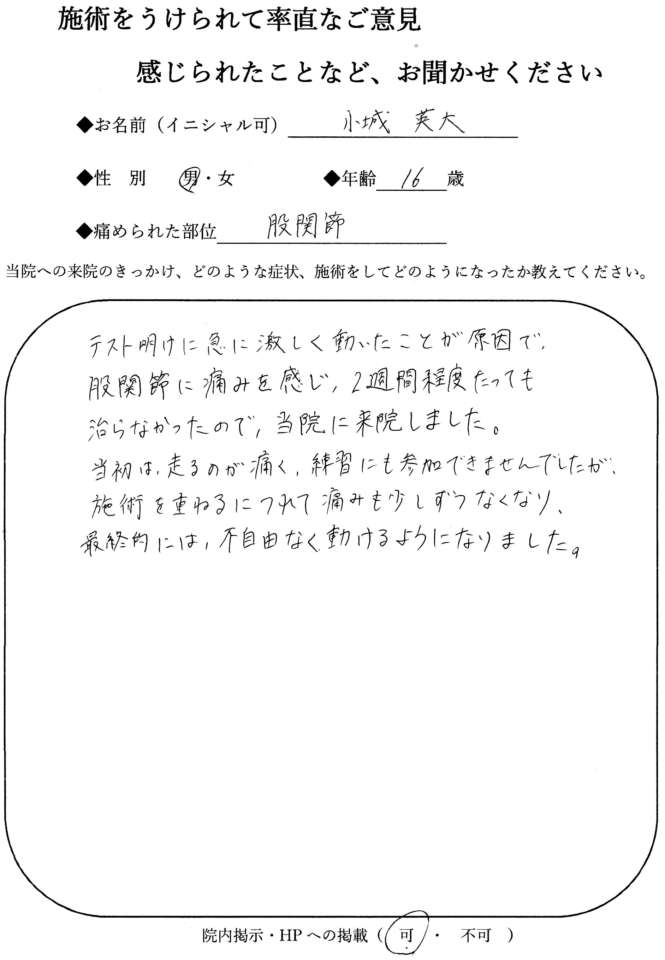 施術をうけられて率直なご意見
感じられたことなど、お聞かせください
◆お名前（イニシャル可） 小城 英大
◆性 別 男・女 ◆年齢 16 歳
◆痛められた部位 股関節
当院への来院のきっかけ、どのような症状、施術をしてどのようになったか教えてください。
テスト明けに急に激しく動いたことが原因で、
股関節に痛みを感じ、2週間程度たっても
治らなかったので、当院に来院しました。
当初は、走るのが痛く、練習にも参加できませんでしたが、
施術を重ねるにつれて痛みも少しずつなくなり、
最終的には、不自由なく動けるようになりました。
院内掲示・HPへの掲載（ 可 ・ 不可 ）